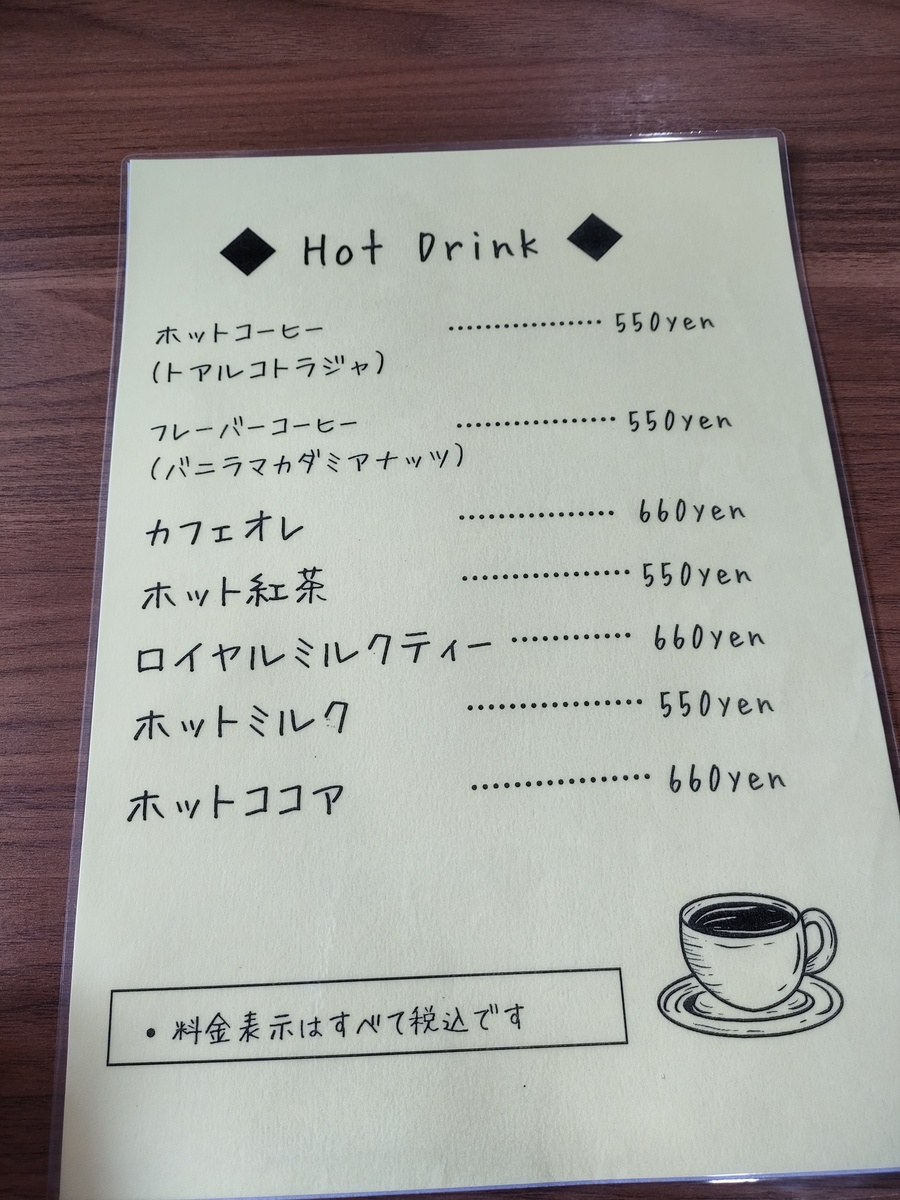 ◆ Hot Drink ◆
ホットコーヒー ················ 550yen
(トアルコトラジャ)
フレーバーコーヒー ················ 550yen
(バニラマカダミアナッツ)
カフェオレ ················ 660yen
ホット紅茶 ················· 550yen
ロイヤルミルクティー ············ 660yen
ホットミルク ·················· 550yen
ホットココア ·················· 660yen
• 料金表示はすべて税込です